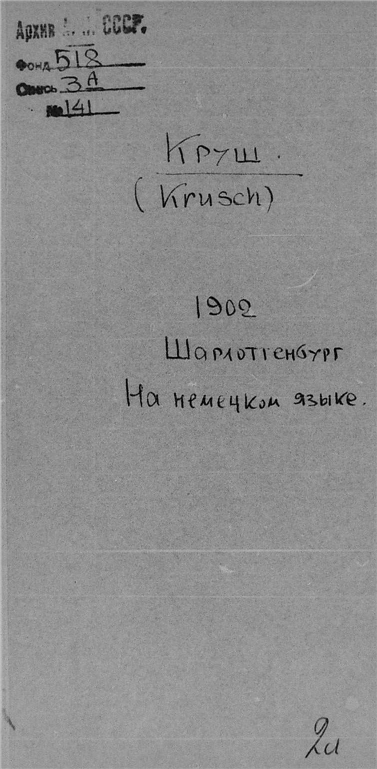 Архив А.Н. СССР.
Фонд 518
Опись 3А
№ 141
Круш.
(Krusch)
1902
Шарлоттенбург
На немецком языке.
2л